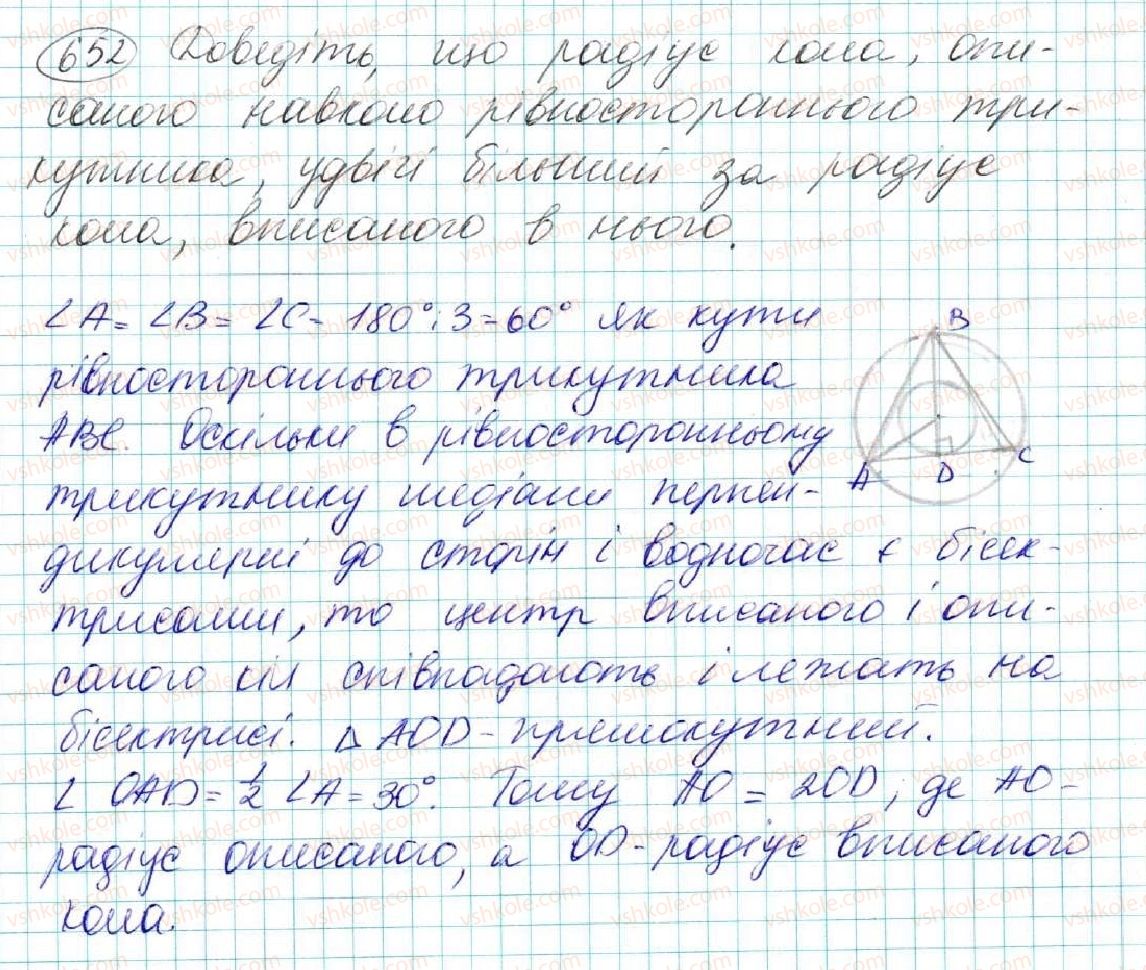 652 Доведіть, що радіус кола, опи-
саного навколо рівностороннього три-
кутника, удвічі більший за радіус
кола, вписаного в нього.
∠A = ∠B = ∠C - 180° : 3 = 60° як кути
рівностороннього трикутника
ABC. Оскільки в рівносторонньому
трикутнику медіани перпен-
дикулярні до сторін і водночас є бісек-
трисами, то центр вписаного і опи-
саного кіл співпадають і лежать на
бісектрисі. △ AOD - прямокутний.
∠ OAD = 1/2 ∠A = 30°. Тому AO = 2OD, де AO -
радіус описаного, а OD - радіус вписаного
кола.
B
A
D
C
vshkole.com